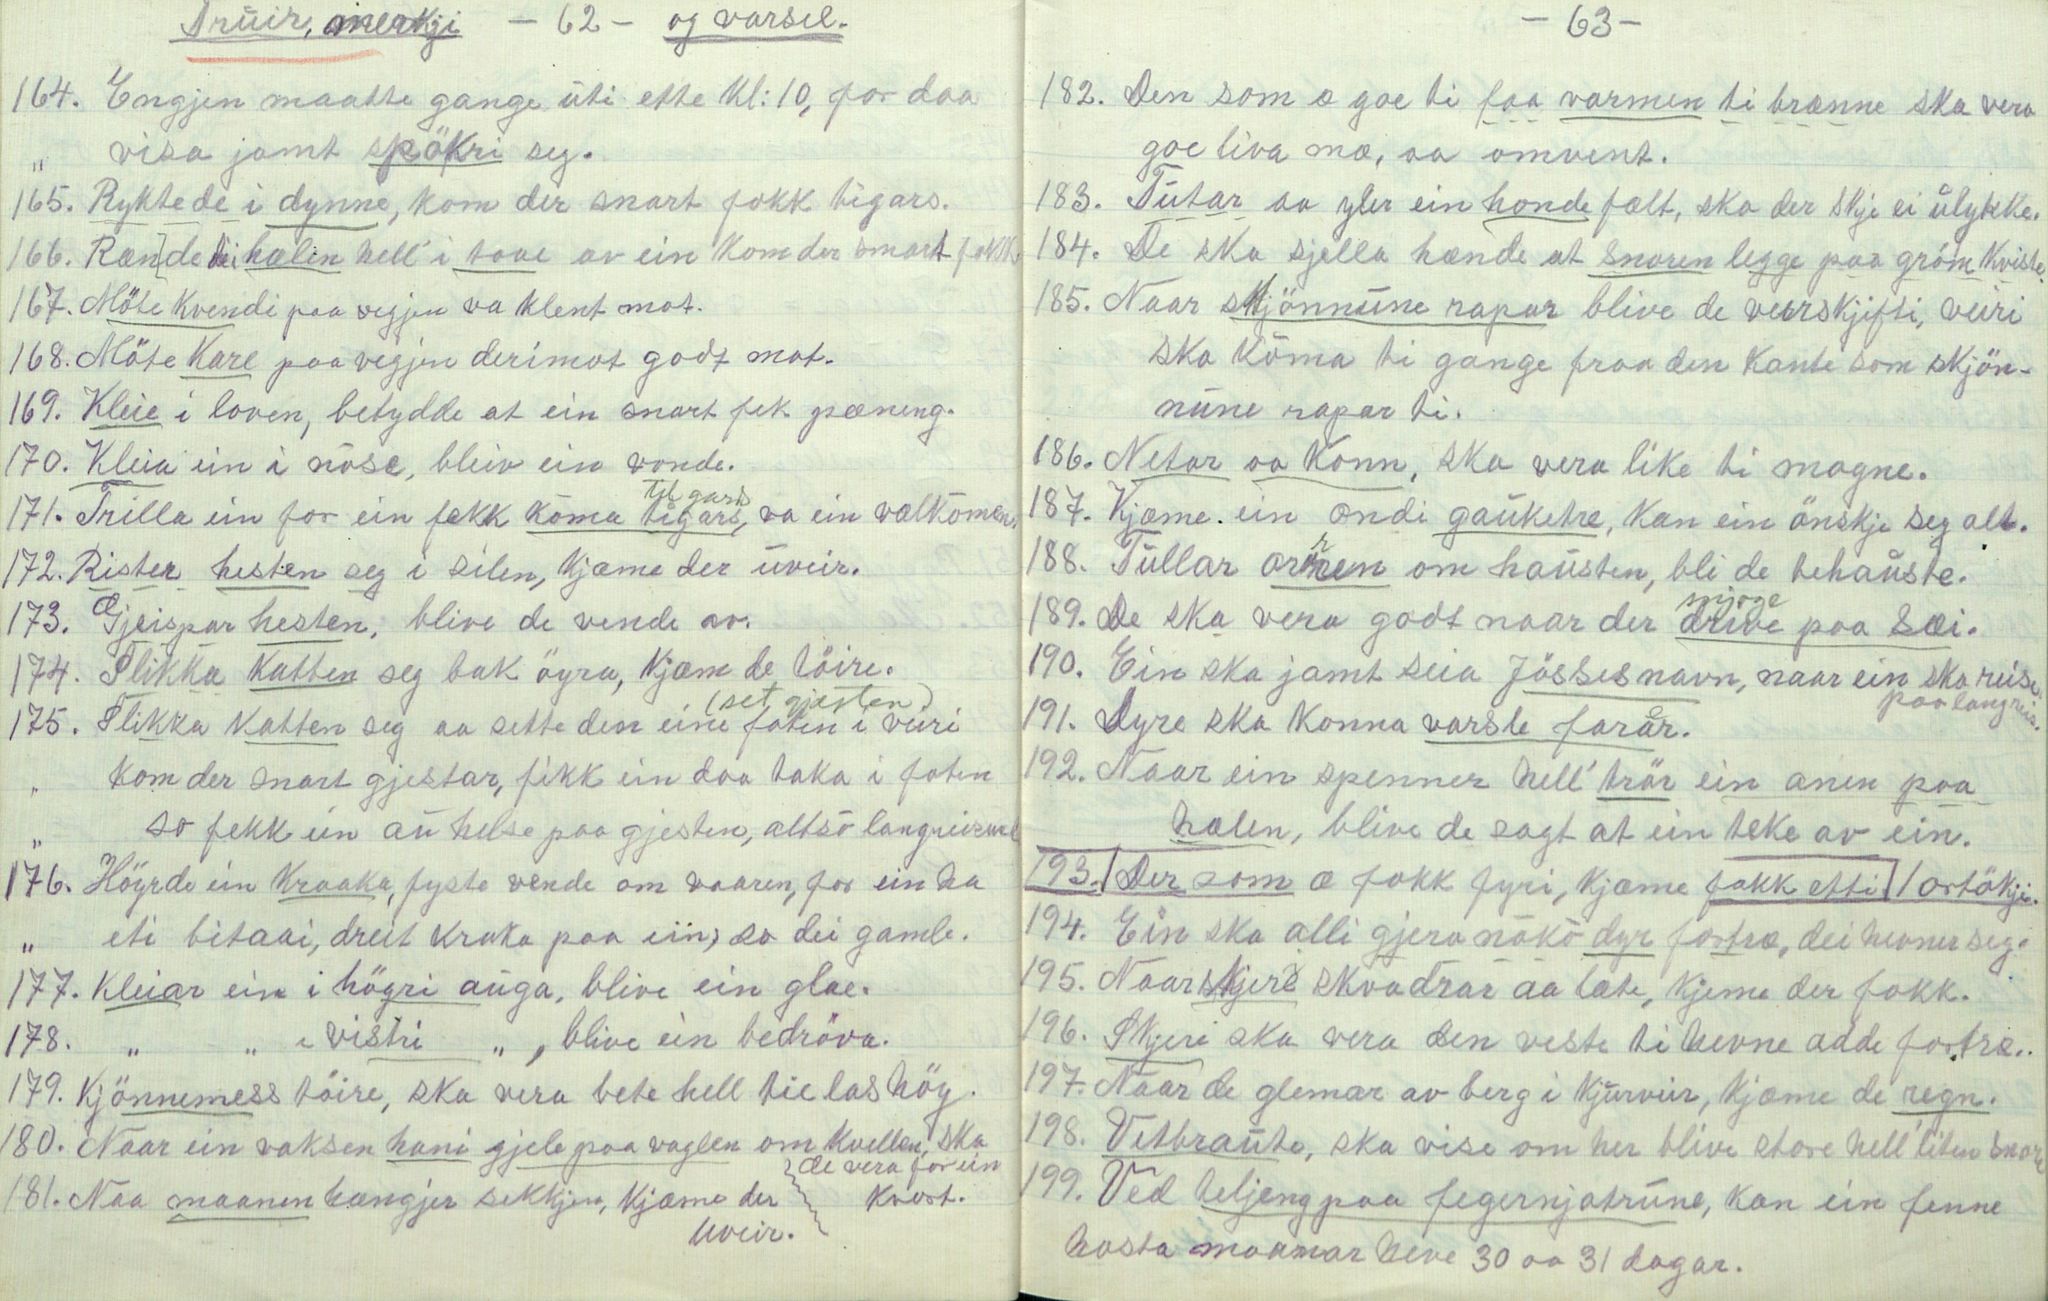 Truir, merkji - 62 - og varsel.
164. Engjen maatte gange uti ette Kl: 10, for daa
" visa jamt spökri seg.
165. Ryktede i dynne, kom der snart fokk tigars.
166. Rænde i hælin hell' i taae av ein kom der snart fokk.
167. Möte Kvendi paa vegjen va klent mot.
168. Möte Kare paa vegjen derimot godt mot.
169. Kleie i loven, betydde at ein snart fek pæneng.
170. Kleia ein i nöse, bleiv ein vonde.
til gards
171. Trilla ein for ein fekk köma tigars, va ein vælkömen.
172. Rister hesten seg i silen, kjæme der üveir.
173. Gjeispar hesten, blive de vende av.
174. Slikka Katten seg bak öyra, kjæm de töire.
(set gjesten)
175. Slikka Katten seg aa sette den eine foten i veiri
" kom der snart gjestar, fikk ein daa taka i foten
" so fekk ein aü helse paa gjesten, altsö langveis
176. Höyrde ein Kraaka, fyste vende om vaaren, for ein ha
" eti bitaai, dreit kraka paa ein, so dei gamle.
177. Kleiar ein i högri aüga, blive ein glae.
178. " " i vistri ", blive ein bedröva.
179. Kjönnemess töire, ska vera bete hell tie las höy.
180. Naar ein vaksen hani gjele paa vaglen om kvellen, ska
de vera for ein
181. Naa maanen hængjer sekkjen, kjæme der kvost.
uveir.
- 63 -
182. Den som æ goe ti faa varmen ti brænne ska vera
goe liva mæ, aa omvent.
183. Tütar aa yler ein honde fælt, ska der skje ei ülykke.
184. De ska sjella hænde at snoren legge paa gröm kviste.
185. Naar skjönnüne rapar blive de veirskjifti, veiri
ska köma ti gange fraa den kante som skjön-
nüne rapar ti.
186. Netar aa Konn, ska vera like ti mogne.
187. Kjæme ein ændi gaüketre, kan ein önskje seg alt.
188. Tüllar orren om haüsten, bli de tehaüste.
snjoge
189. De ska vera godt naar der drive paa Sæi.
190. Ein ska jamt seia Jössesnavn, naar ein ska reise
paa langreis.
191. Dyre ska konna varsle farür.
192. Naar ein spenner hell' trör ein anen paa
hælen, blive de sagt at ein teke av ein.
193. Der som æ fokk fyri, kjæme fokk etti / ortökji.
194. Ein ska alli gjera nökö dyr fortræ, dei hevner seg.
195. Naar skjere skvadrar aa læte, kjeme der fokk.
196. Skjeri ska vera den veste ti hevne adde fortræ..
197. Naar de glemar av berg i kjürveir, kjæme de regn.
198. Vetbraute, ska vise om her blive store hell' liten snore
199. Ved teljeng paa fegernjotrüne, kan ein fenne
hosta maanar heve 30 aa 31 dagar.